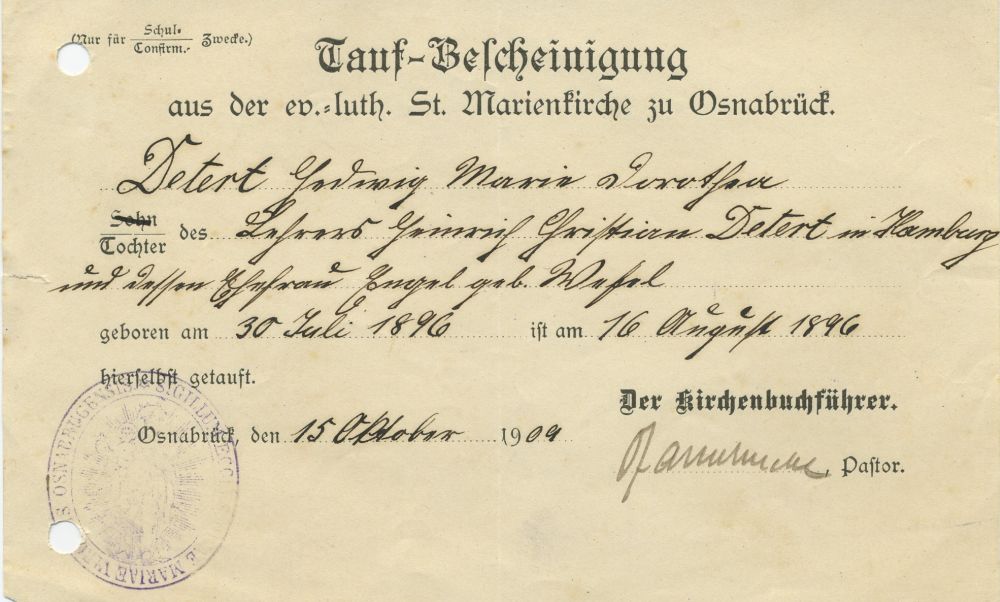 (Nur für Schul-/Confirm.- Zwecke.)
Tauf-Bescheinigung
aus der ev.-luth. St. Marienkirche zu Osnabrück.
Detert Hedwig Marie Dorothea
Sohn
Tochter des Lehrers Heinrich Christian Detert in Hamburg
und dessen Ehefrau Engel geb. Wessel
geboren am 30 Juli 1896 ist am 16 August 1896
hierselbst getauft.
Der Kirchenbuchführer.
Osnabrück, den 15 Oktober 1909
Pastor.
SIGILLUM ECC MARIAE OSNABRUGENSIS